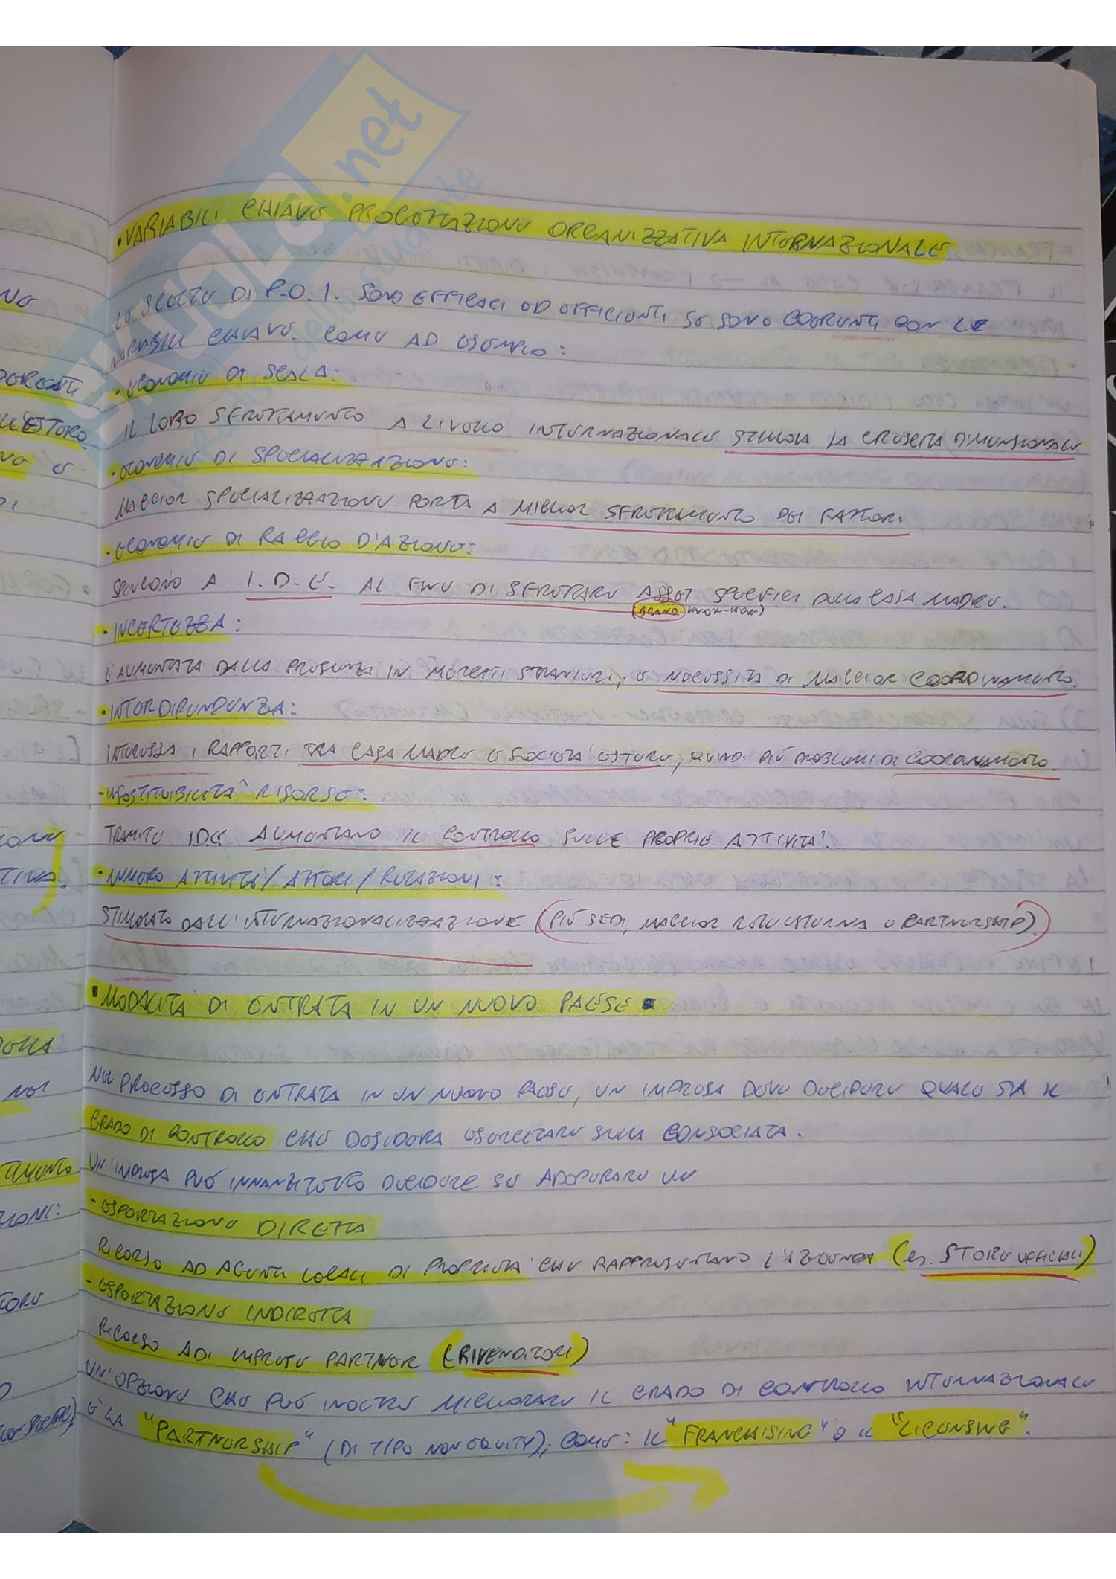 • VARIABILI CHIAVE PROGETTAZIONE ORGANIZZATIVA INTERNAZIONALE
LE SCELTE DI P.O.I. SONO EFFICACI ED EFFICIENTI SE SONO COERENTI CON LE
VARIABILI CHIAVE. COME AD ESEMPIO:
- ECONOMIE DI SCALA:
IL LORO SFRUTTAMENTO A LIVELLO INTERNAZIONALE STIMOLA LA CRESCITA DIMENSIONALE
- ECONOMIE DI SPECIALIZZAZIONE:
MAGGIOR SPECIALIZZAZIONE PORTA A MIGLIOR SFRUTTAMENTO DEI FATTORI
- ECONOMIE DI RAGGIO D'AZIONE:
SPINGONO A I.D.E. AL FINE DI SFRUTTARE ASSET SPECIFICI DELLA CASA MADRE.
(BRAND, KNOW-HOW)
- INCERTEZZA:
È AUMENTATA DALLA PRESENZA IN MERCATI STRANIERI, E NECESSITÀ DI MAGGIOR COORDINAMENTO.
- INTERDIPENDENZA:
INTERESSA I RAPPORTI TRA CASA MADRE E SOCIETÀ ESTERE, QUINDI PIÙ PROBLEMI DI COORDINAMENTO.
- INSOSTITUIBILITÀ RISORSE:
TRAMITE IDE AUMENTANO IL CONTROLLO SULLE PROPRIE ATTIVITÀ.
- NUMERO ATTIVITÀ/ATTORI/RELAZIONI:
STIMOLATO DALL'INTERNAZIONALIZZAZIONE (PIÙ SEDI, MAGGIOR RETE ESTERNA E PARTNERSHIP).
• MODALITÀ DI ENTRATA IN UN NUOVO PAESE •
NEL PROCESSO DI ENTRATA IN UN NUOVO PAESE, UN IMPRESA DEVE DECIDERE QUALE SIA IL
GRADO DI CONTROLLO CHE DESIDERA ESERCITARE SULLA CONSOCIATA.
UN'IMPRESA PUÒ INNANZITUTTO DECIDERE SE ADOPERARE UN
- ESPORTAZIONE DIRETTA
RICORSO AD AGENTI LOCALI DI PROPRIETÀ CHE RAPPRESENTANO L'AZIENDA (es. STORE UFFICIALI)
- ESPORTAZIONE INDIRETTA
RICORSO AD IMPRESE PARTNER (RIVENDITORI)
UN'OPZIONE CHE PUÒ INOLTRE MIGLIORARE IL GRADO DI CONTROLLO INTERNAZIONALE
È LA "PARTNERSHIP" (DI TIPO NON EQUITY), COME: IL "FRANCHISING" E IL "LICENSING".